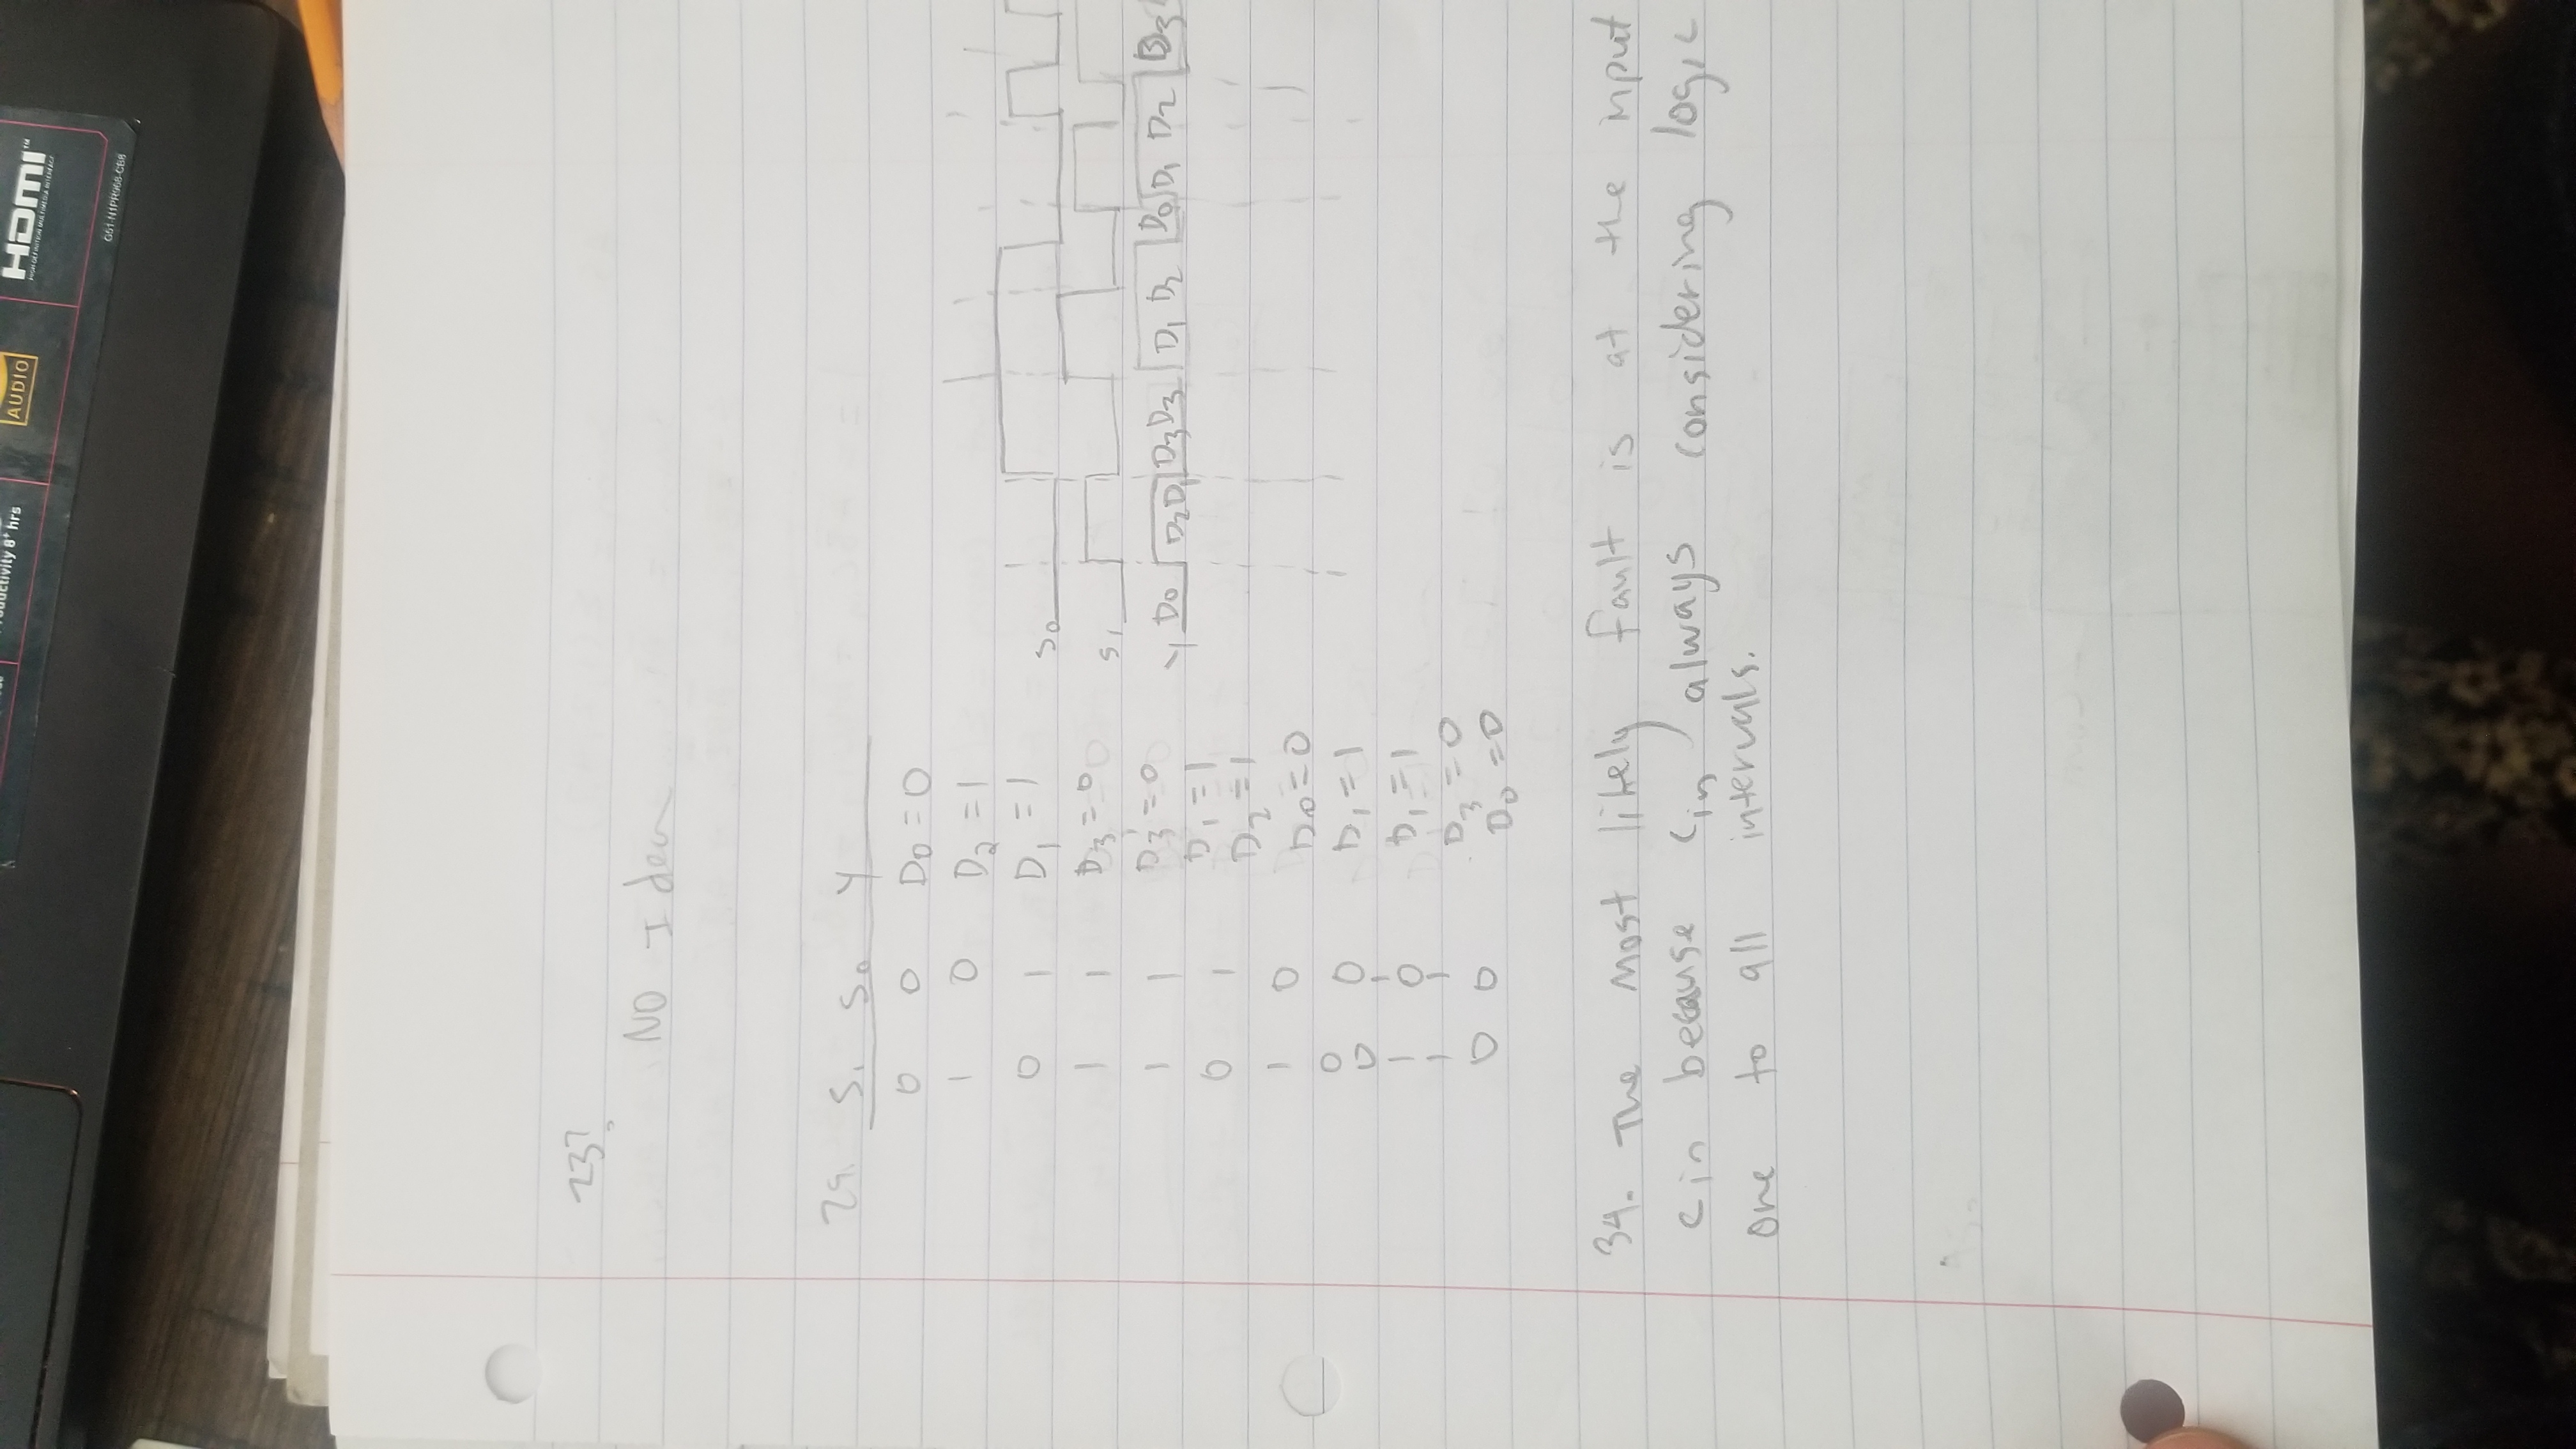 oductivity 8+ hrs
AUDIO
HDMI™
HIGH-DEFINITION MULTIMEDIA INTERFACE
23?
NO Idea
29. S₁ S₀ Y
0 0 D₀ = 0
1 0 D₂ = 1
0 1 D₁ = 1
1 1 D₃ = 0
1 1 D₃ = 0
0 1 D₁ = 1
D₂ = 1
1 0 D₀ = 0
0 0 D₁ = 1
0 1
1 0 D₁ = 1
1 1 D₃ = 0
0 0 D₀ = 0
S₀
S₁
Y D₀ D₂ D₁ D₃ D₃ D₁ D₂ D₀ D₁ D₂ D₃
34. The most likely fault is at the input
cin because Cin always considering logic
one to all intervals.